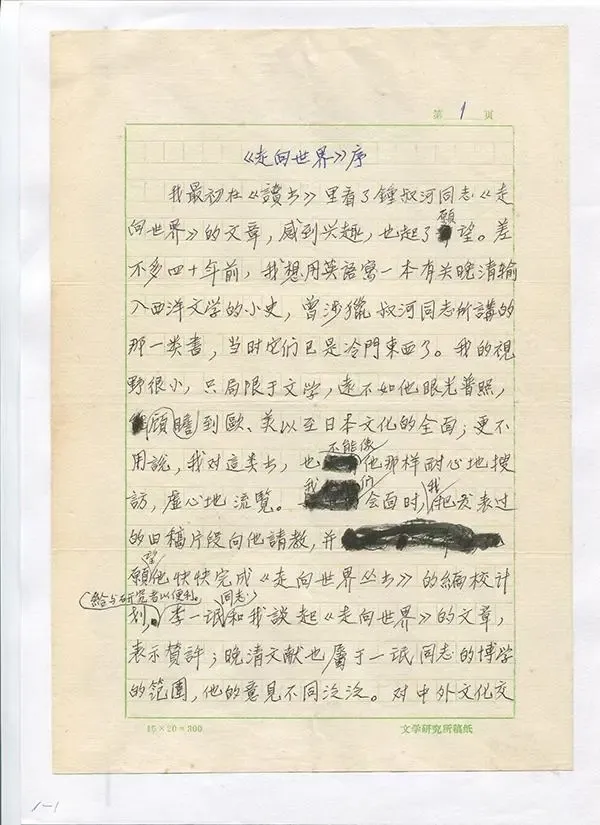 第 1 页
《走向世界》序
我最初在《讀书》里看了鍾叔河同志《走
向世界》的文章，感到兴趣，也起了願望。差
不多四十年前，我想用英語寫一本有关晚清输
入西洋文学的小史，曾涉獵叔河同志所講的
那一类書，当时它们已是冷門東西了。我的視
野很小，只局限于文学，遠不如他眼光普照，
顧瞻到歐、美以至日本文化的全面；更不
用說，我对這类书，也不能像他那样耐心地搜
訪，虛心地流覽。我们会面时，我把发表过
的旧稿片段向他請教，并
願望他快快完成《走向世界丛书》的編校计
划，給与研究者以便利。李一氓同志和我談起《走向世界》的文章，
表示赞許；晚清文献也屬于一氓同志的博学
的范围，他的意見不同泛泛。对中外文化交
15×20=300 文学研究所稿纸
1-1